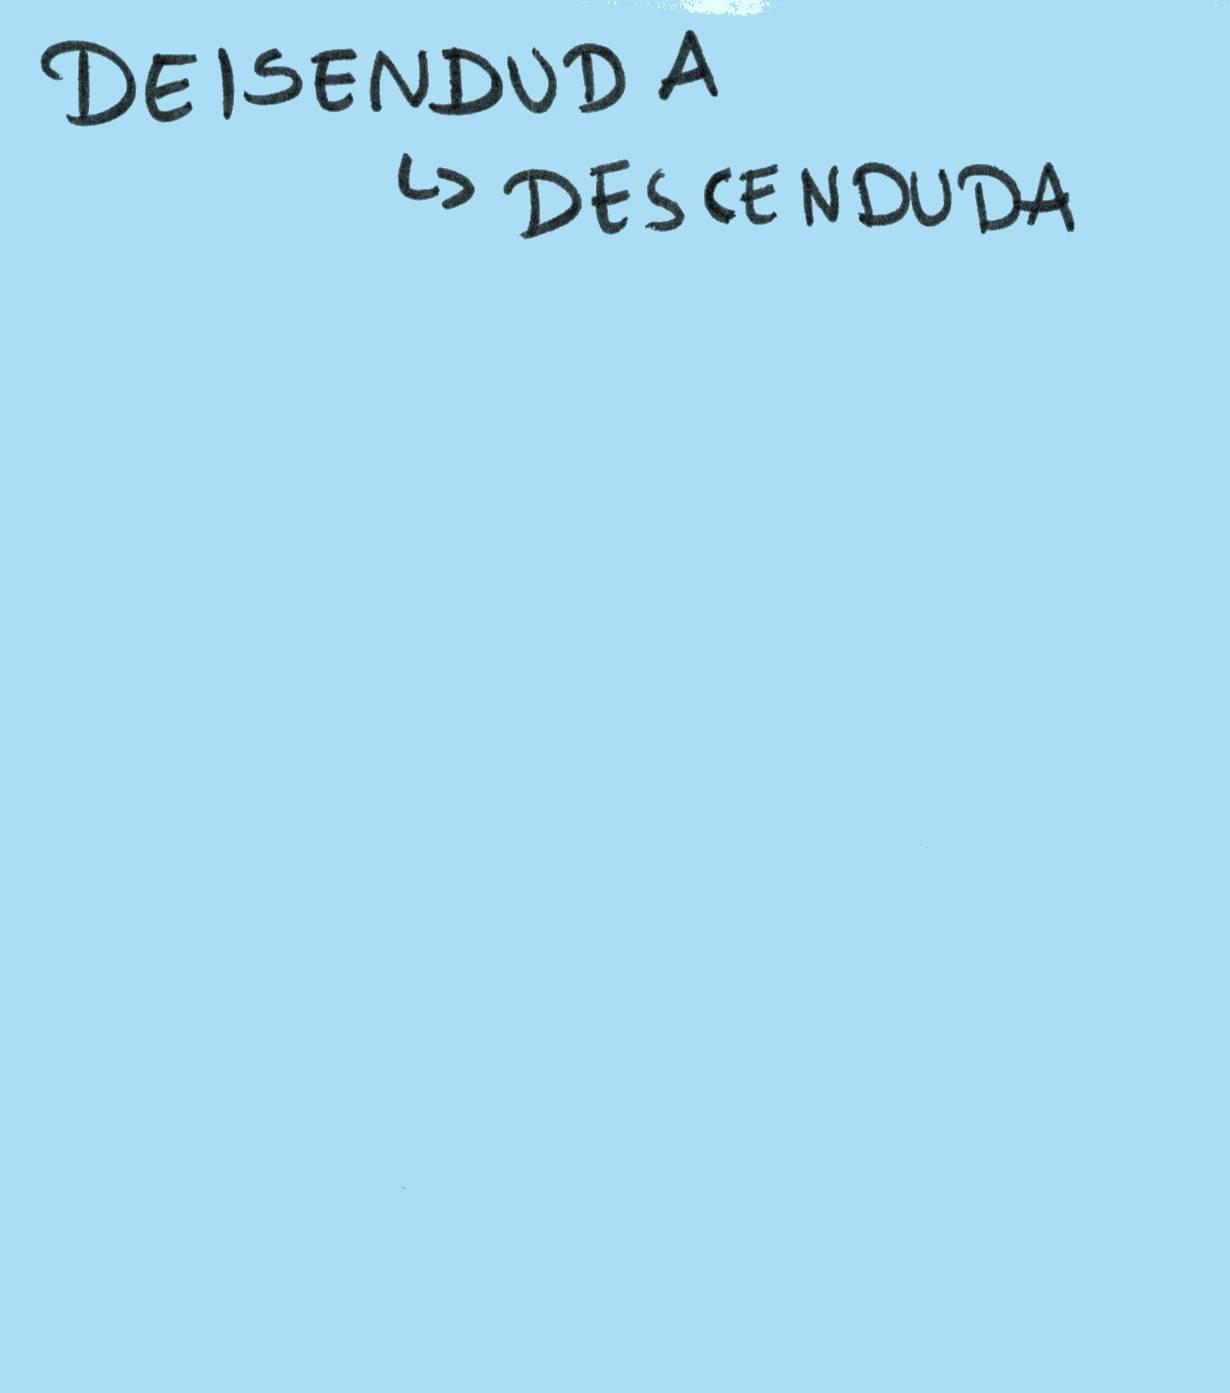 DEISENDUD A
↳ DESCENDUDA